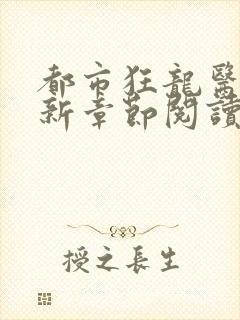 都市狂龍醫
新章節閱讀
授之長生